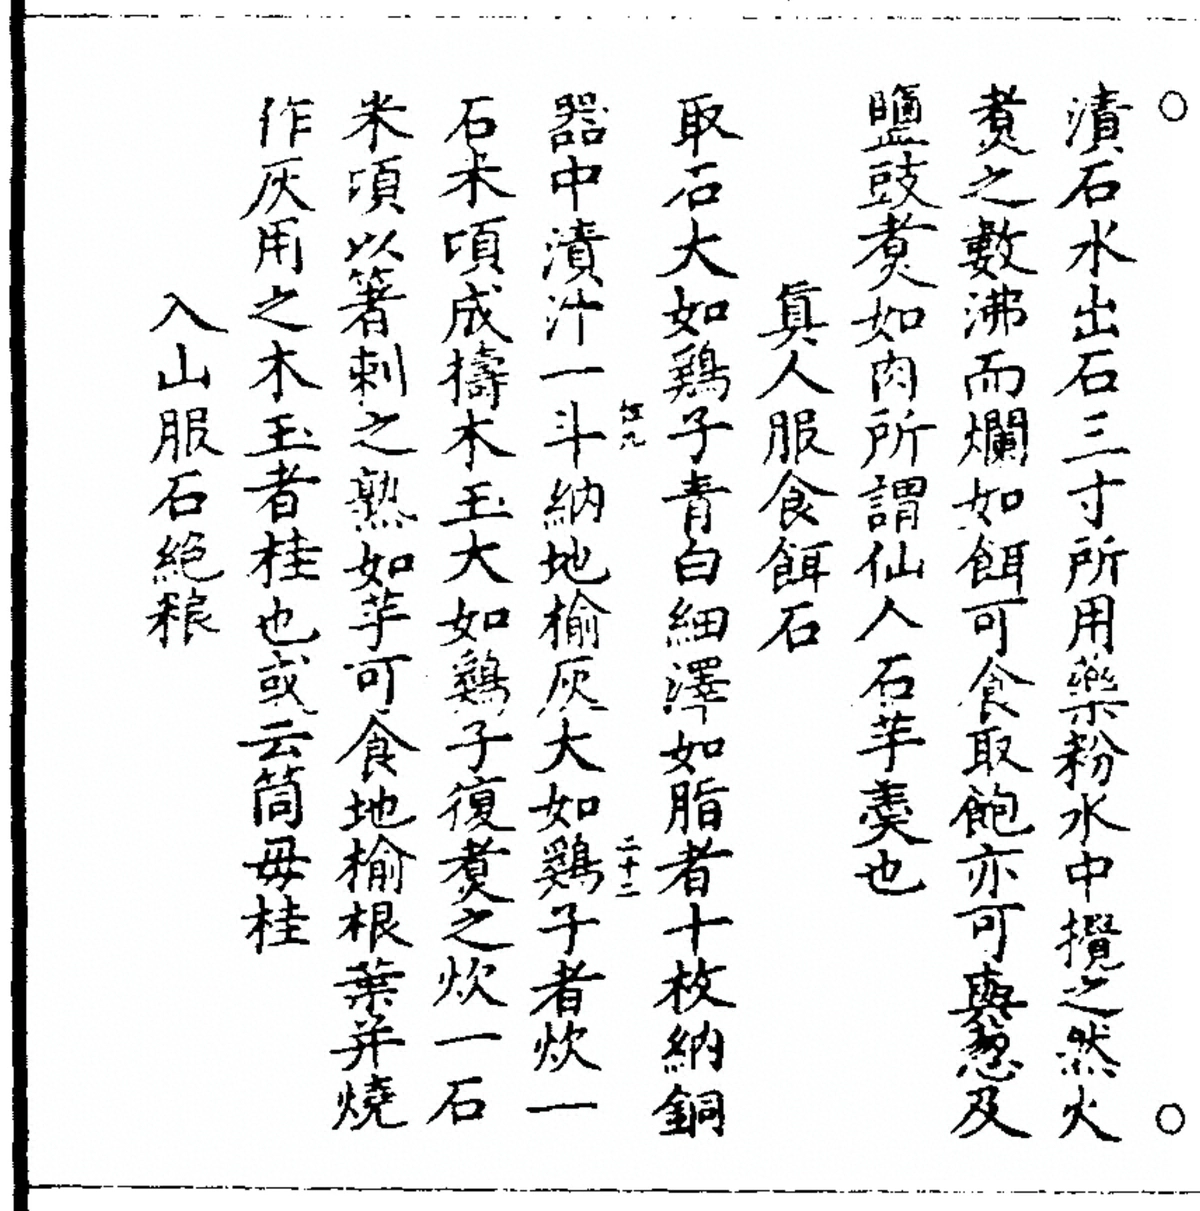 漬石水出石三寸所用藥粉水中攪之然火
煑之數沸而爛如餌可食取飽亦可與葱及
鹽豉煑如肉所謂仙人石芋羹也
眞人服食餌石
取石大如鶏子青白細澤如脂者十枚納銅
二十二
器中漬汁一斗納地榆灰大如鶏子者炊一
石米頃成擣木玉大如鶏子復煑之炊一石
米頃以箸刺之熟如芋可食地榆根葉并燒
作灰用之木玉者桂也或云筒毋桂
入山服石絶粮